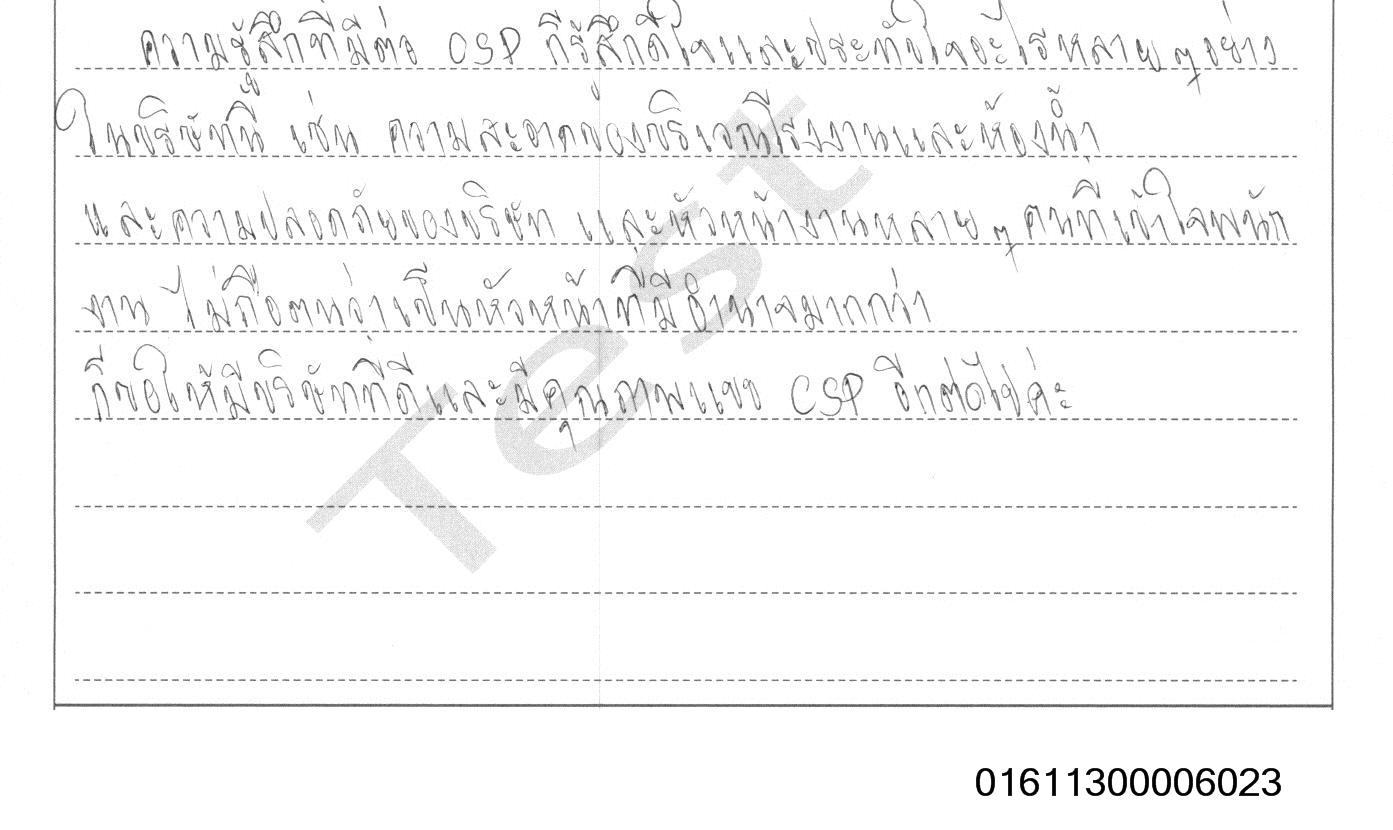 ความรู้สึกที่มีต่อ CSP ก็รู้สึกดีใจและประทับใจอะไรหลายๆอย่าง
ในบริษัทนี้ เช่น ความสะอาดของบริเวณโรงงานและห้องน้ำ
และความปลอดภัยของบริษัท และหัวหน้างานหลายๆคนที่เข้าใจพนัก
งาน ไม่ถือตนว่าเป็นหัวหน้าที่มีอำนาจมากกว่า
ก็ขอให้มีบริษัทที่ดีและมีคุณภาพแบบ CSP อีกต่อไปค่ะ
Test
01611300006023